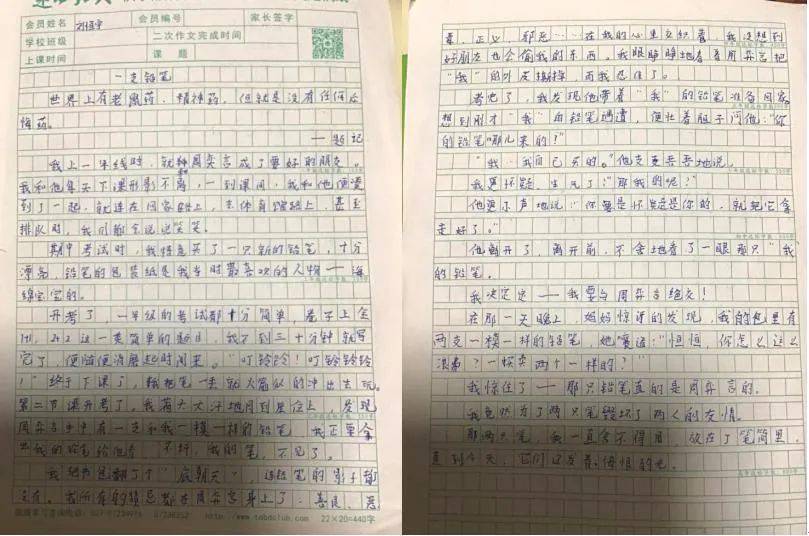 会员姓名
会员编号
家长签字
学校班级
二次作文完成时间
上课时间
课 题
一支铅笔
世界上有老鼠药、精神药，但就是没有任何后
悔药。
——题记
我上一年级时，就和周弈言成了要好的朋友。
我和他每天下课形影不离，一到课间，我和他便凑
到了一起，就连在回家路上，去体育馆路上，甚至
排队时，我们都会说说笑笑。
期中考试时，我特意买了一只新的铅笔，十分
漂亮，铅笔的包装纸是我当时最喜欢的人物——海
绵宝宝的。
开考了，一年级的考试都十分简单，卷子上全
1+1，2+2这一类简单的题目，我不到三十分钟就写
完了，便偷偷消磨起时间来。“叮铃铃！叮铃铃铃
！”终于下课了，我把笔一丢就火箭似的冲出去玩。
第二节课开考了。我满头大汗地回到座位上，发现
周弈言手中有一支和我一模一样的铅笔，我正要拿
出我的铅笔给他看，不好，我的笔，不见了。
我把书包翻了个“底朝天”，连铅笔的影子都
没有。我所有的疑惑都在周弈言身上了，善良、恶
意，正义，邪恶……在我的心里交织着，我没想到
好朋友也会偷我的东西。我眼睁睁地看着周弈言把
“我”的外皮撕掉，而我忍住了。
考完了，我发现他带着“我”的铅笔准备回家。
想到刚才“我”的铅笔遭遇，便壮着胆子问他：“你
的铅笔哪儿来的？”
“我…我自己买的。”他支支吾吾地说。
我更怀疑、生气了：“那我的呢？”
他更小声地说：“你要是怀疑是你的，就把它拿
走好了。”
他离开了，离开前，不舍地看了一眼那只“我”
的铅笔。
我决定定——我要与周弈言绝交！
在那一天晚上，妈妈惊讶的发现，我的包里有
两支一模一样的铅笔，她
浪费？一次买两个一样的？”
我惊住了——那只铅笔真的是周弈言的。
我竟然为了两只笔毁坏了两人的友情。
那两只笔，我一直舍不得用，放在了笔筒里，
直到今天，它们还发着悔恨的光。
http://www.tobdclub.com
22×20=440字